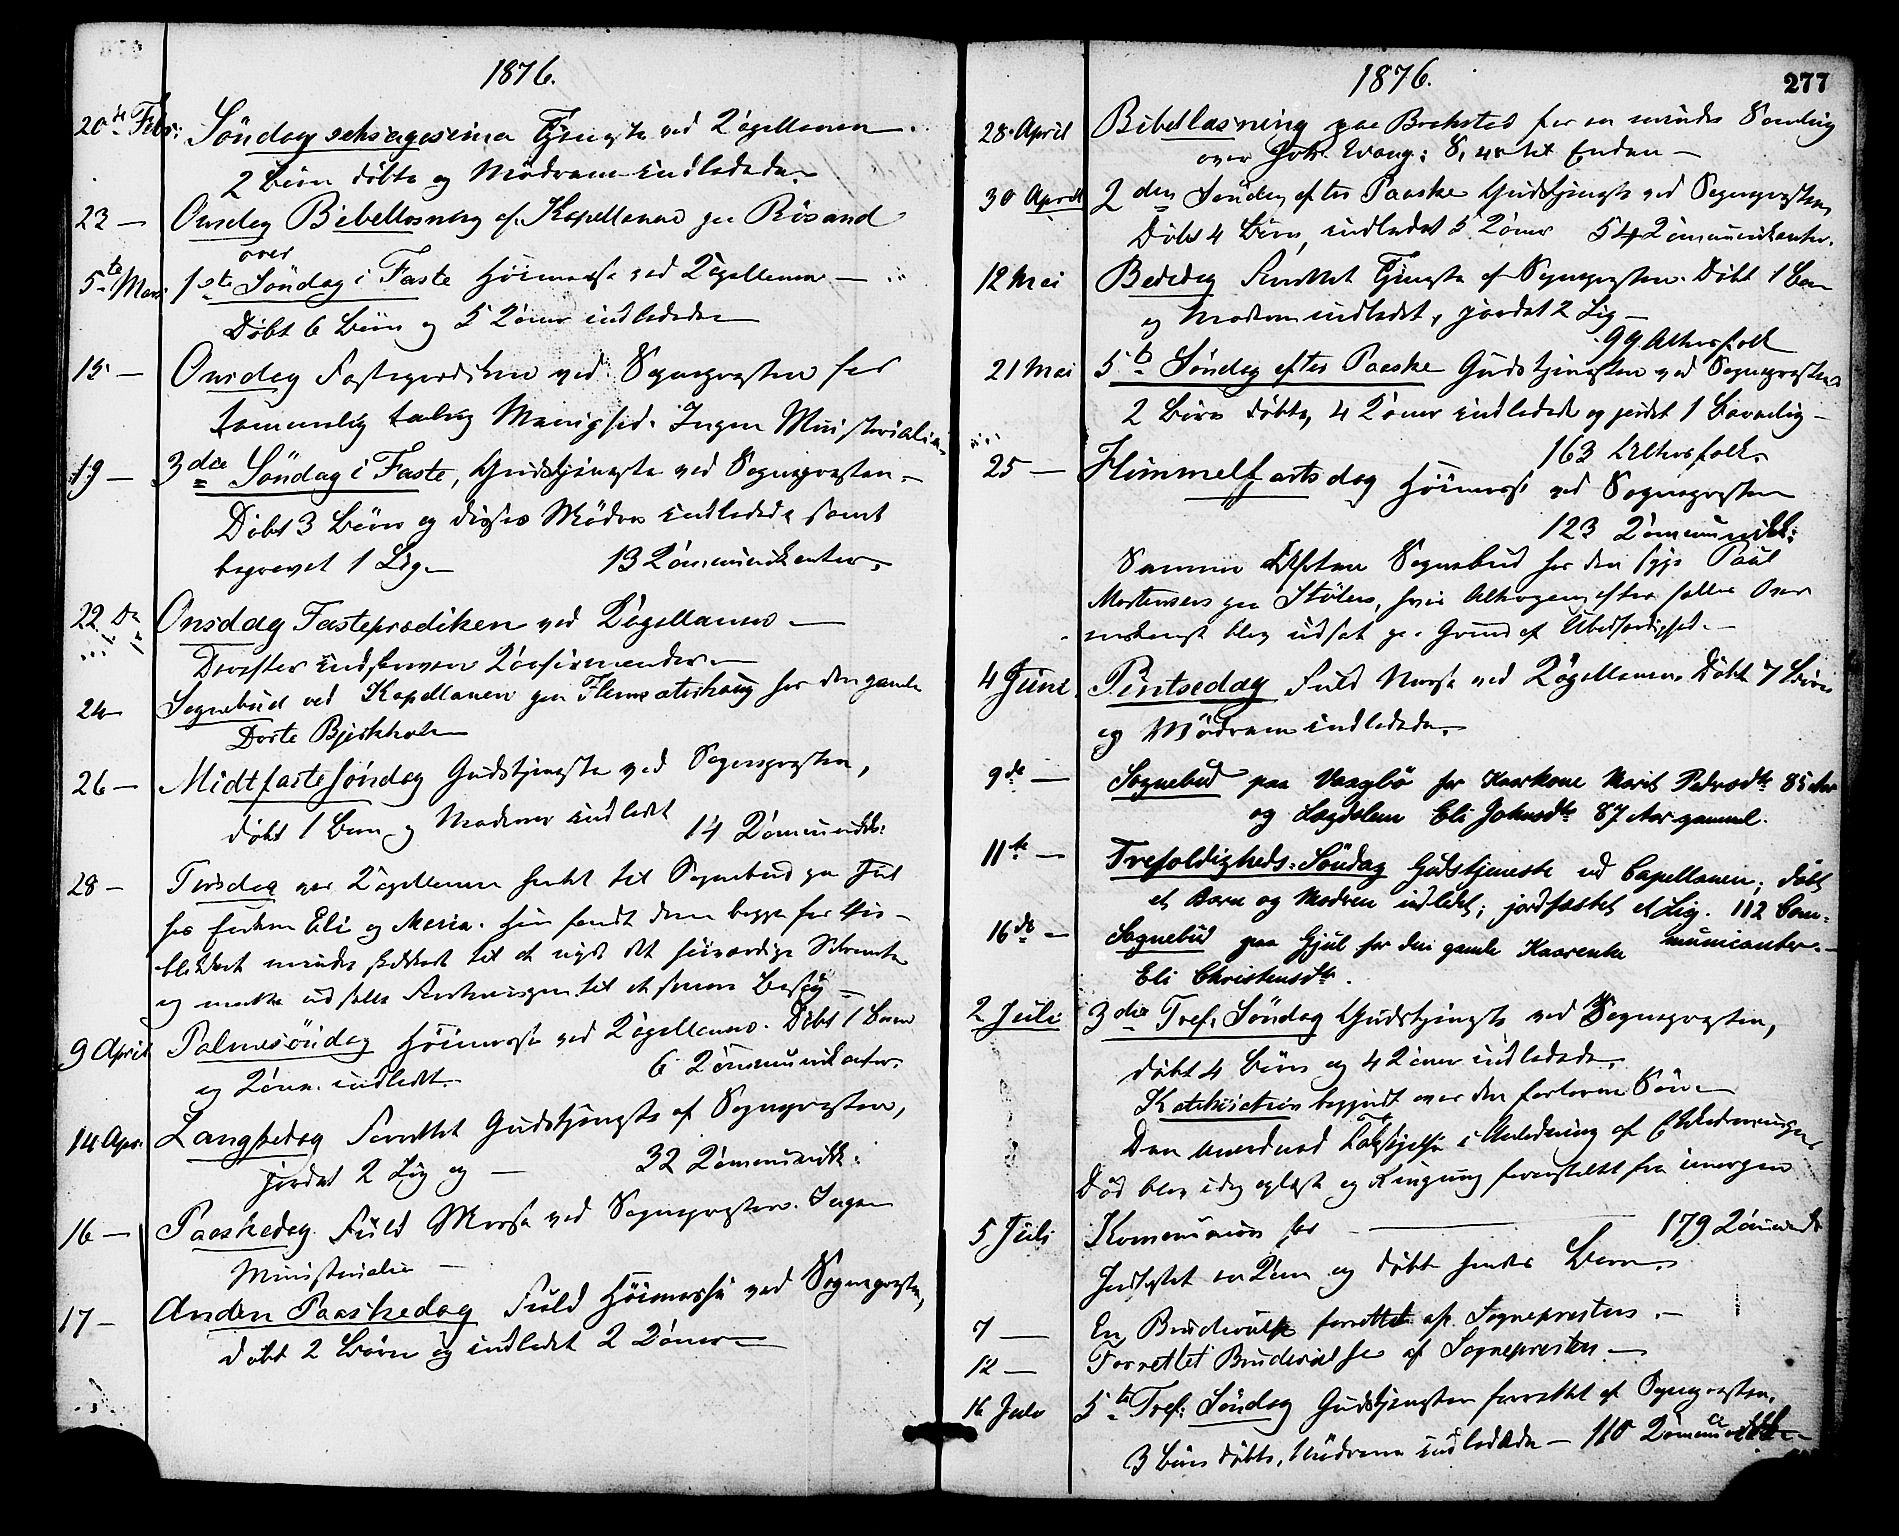 1876.
20de Febr: Söndag seksagesima Tjeneste ved Kapellanen.
2 Börn döbte og Mödrene indledede.
23 — Onsdag Bibellæsning af Kapellanen paa Rösand
over
5te Mars 1ste Söndag i Faste Höimesse ved Kapellanen —
Döbt 6 Börn og 5 Koner indledede
15 — Onsdag Fasteprædiken ved Sognepresten for
temmelig talrig Mænghed. Ingen Ministerialia
19 — 3die Söndag i Faste, Gudstjeneste ved Sognepresten —
Döbt 3 Börn og disses Mödre indledede samt
begravet 1 Lig — 13 Kommunikanter.
22 De Onsdag Fasteprædiken ved Kapellanen —
Derefter indskreven Konfirmander —
24 Sognebud ved Kapellanen paa Flemsæterhaug for den gamle
Dorte Bjerkholen
26 — Midtfastesöndag Gudstjeneste ved Sognepresten,
döbt 1 Barn og Moderen indledet 14 Kommunikk:
28 — Tirsdag var Kapellanen hentet til Sognebud paa Jul
hos Enken Eli og Maria. Han fandt dem begge for Öie-
blikket mindre skikket til at nyde det höiværdige Sakramente
og maatte udsætte Forretningen til et senere Besög —
9 April Palmesöndag Höimesse ved Kapellanen. Döbt 1 Barn
og Kone indledt. 6 Kommunikanter.
14 Apr: Langfredag Forrettet Gudstjeneste af Sognepresten,
jordet 2 Lig og — 32 Kommunikk:
16 — Paaskedag Fuld Messe ved Sognepresten. Ingen
Ministerialia —
17 — Anden Paaskedag Fuld Höimesse ved Sognepresten,
döbt 2 Börn og indledet 2 Koner —
1876. 277
28 April Bibellæsning paa Brekstad for en mindre Samling
over Joh. Evang: 8, 48 til Enden —
30 April 2den Söndag efter Paaske Gudstjeneste ved Sognepresten
Döbt 4 Börn, indledet 5 Koner 54 Kommunikanter.
12 Mai Bededag Forrettet Tjeneste af Sognepresten. Döbt 1 Barn
og Moderen indledet, jordet 2 Lig —
99 Altersfolk
21 Mai 5te Söndag efter Paaske Gudstjenesten ved Sognepresten
2 Börn döbte, 4 Koner indledede og jordet 1 Barnelig —
163 Altersfolk.
25 — Himmelfartsdag Höimesse ved Sognepresten
123 Kommunikk:
Samme Aften Sognebud for den syge Paul
Mortensen paa Stölen, hvis Altergang efter fælles Over
enskomst blev udsat paa Grund af Ubetfærdighed. —
4 Juni Pintsedag Fuld Messe ved Kapellanen. Döbt 7 Börn
og Mödrene indledede.
9de — Sognebud paa Vaagbö for Kaarkone Marit Pedersdtr 85 Aar
og Lægdslem Eli Johnsdtr 87 Aar gammel.
11te — Trefoldigheds-Söndag Gudstjeneste ved Capellanen; döbt
et Barn og Modren indledet; jordfæstet et Lig. 112 Com-
municanter. —
16de — Sognebud paa Gjul for den gamle Kaarenke
Eli Christensdtr.
2 Juli 3die Tref: Söndag Gudstjeneste ved Sognepresten,
döbt 4 Börn og 4 Koner indledede.
Katekisation begyndt over den fortorne Sön —
Den anordnede Taksigelse i Anledning af Enkedronningens
Död blev idag oplæst og Ringning foranstaltet fra imorgen
5 Juli Kommunion for — 179 Kommunik
Indledet en Kone og döbt hendes Barn.
7 — En Brudevielse forrettet af Sognepresten. —
12 — Forrettet Brudevielse af Sognepresten —
16 Juli 5te Tref: Söndag Gudstjenesten forrettet af Sognepresten,
3 Börn döbte, Mödrene indledede — 110 Kommunikk